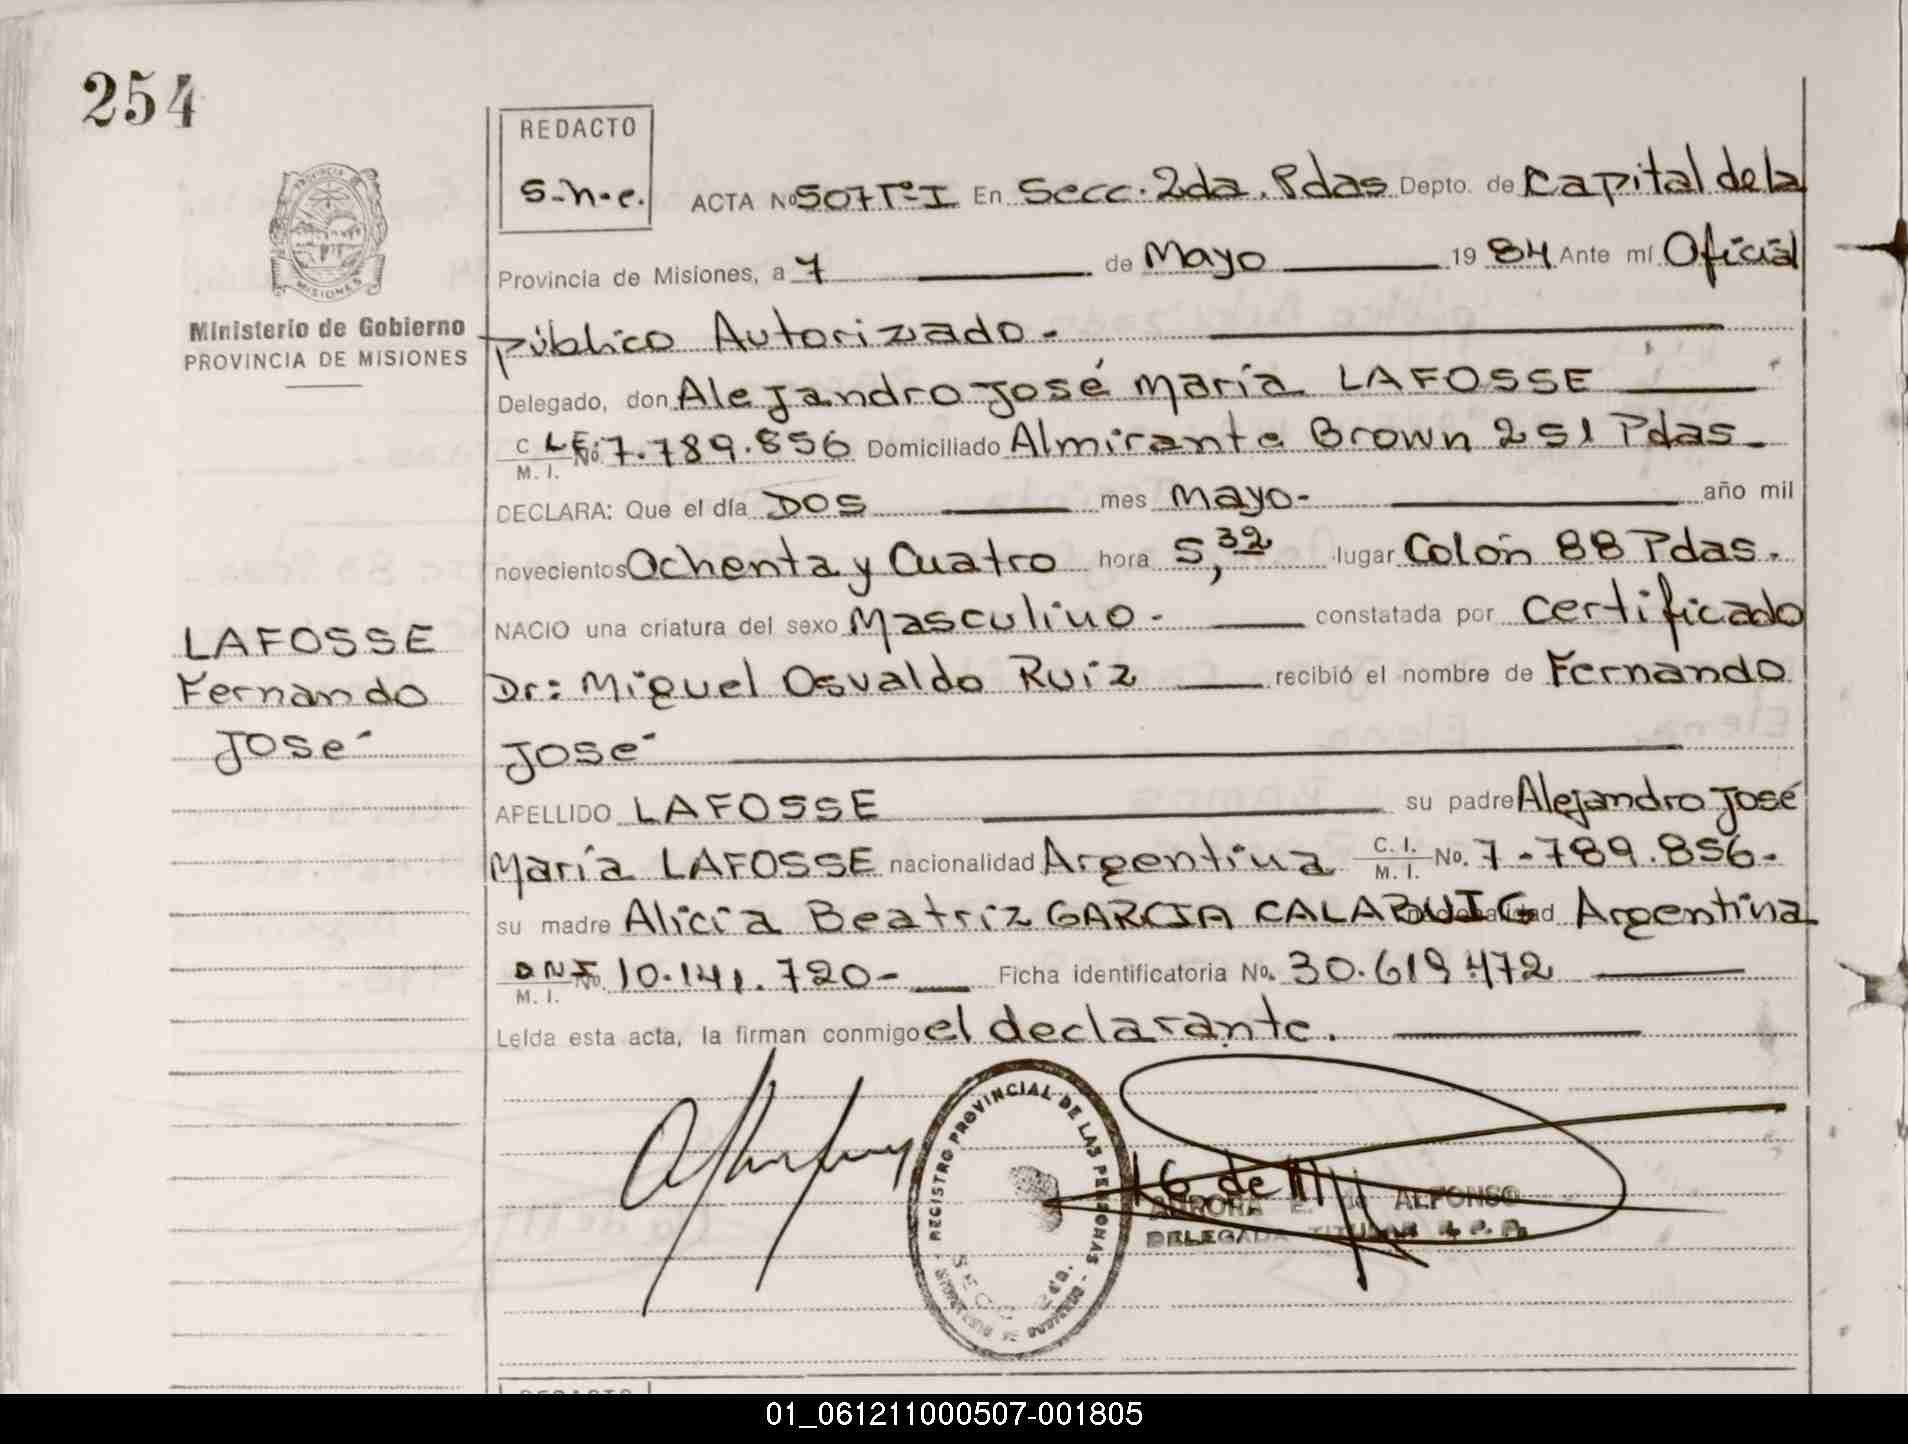 254
REDACTO
S-n-e.
ACTA Nº 507 Tº I En Secc. 2da. Pdas Depto. de Capital de la
Provincia de Misiones, a 7 de Mayo 1984 Ante mí Oficial
Ministerio de Gobierno
PROVINCIA DE MISIONES
público Autorizado.-
Delegado, don Alejandro José María LAFOSSE
C. L.E. No. 7.789.856 Domiciliado Almirante Brown 251 Pdas.
M. I.
DECLARA: Que el día DOS mes Mayo- año mil
novecientos Ochenta y Cuatro hora 5,32 lugar Colón 88 Pdas.
NACIO una criatura del sexo Masculino.- constatada por Certificado
LAFOSSE
Fernando
José
Dr: Miguel Osvaldo Ruiz recibió el nombre de Fernando
José
APELLIDO LAFOSSE su padre Alejandro José
María LAFOSSE nacionalidad Argentina C. I. M. I. No. 7.789.856.-
su madre Alicia Beatriz GARCIA CALABUIG nacionalidad Argentina
DNI No. 10.141.720- Ficha identificatoria No. 30.619.472
M. I.
Leída esta acta, la firman conmigo el declarante.
REGISTRO PROVINCIAL DE LAS PERSONAS
SECC. 2da.
AURORA E. de ALFONSO
DELEGADA TITULAR R. P. P.
MISIONES
REDACTO
01_061211000507-001805